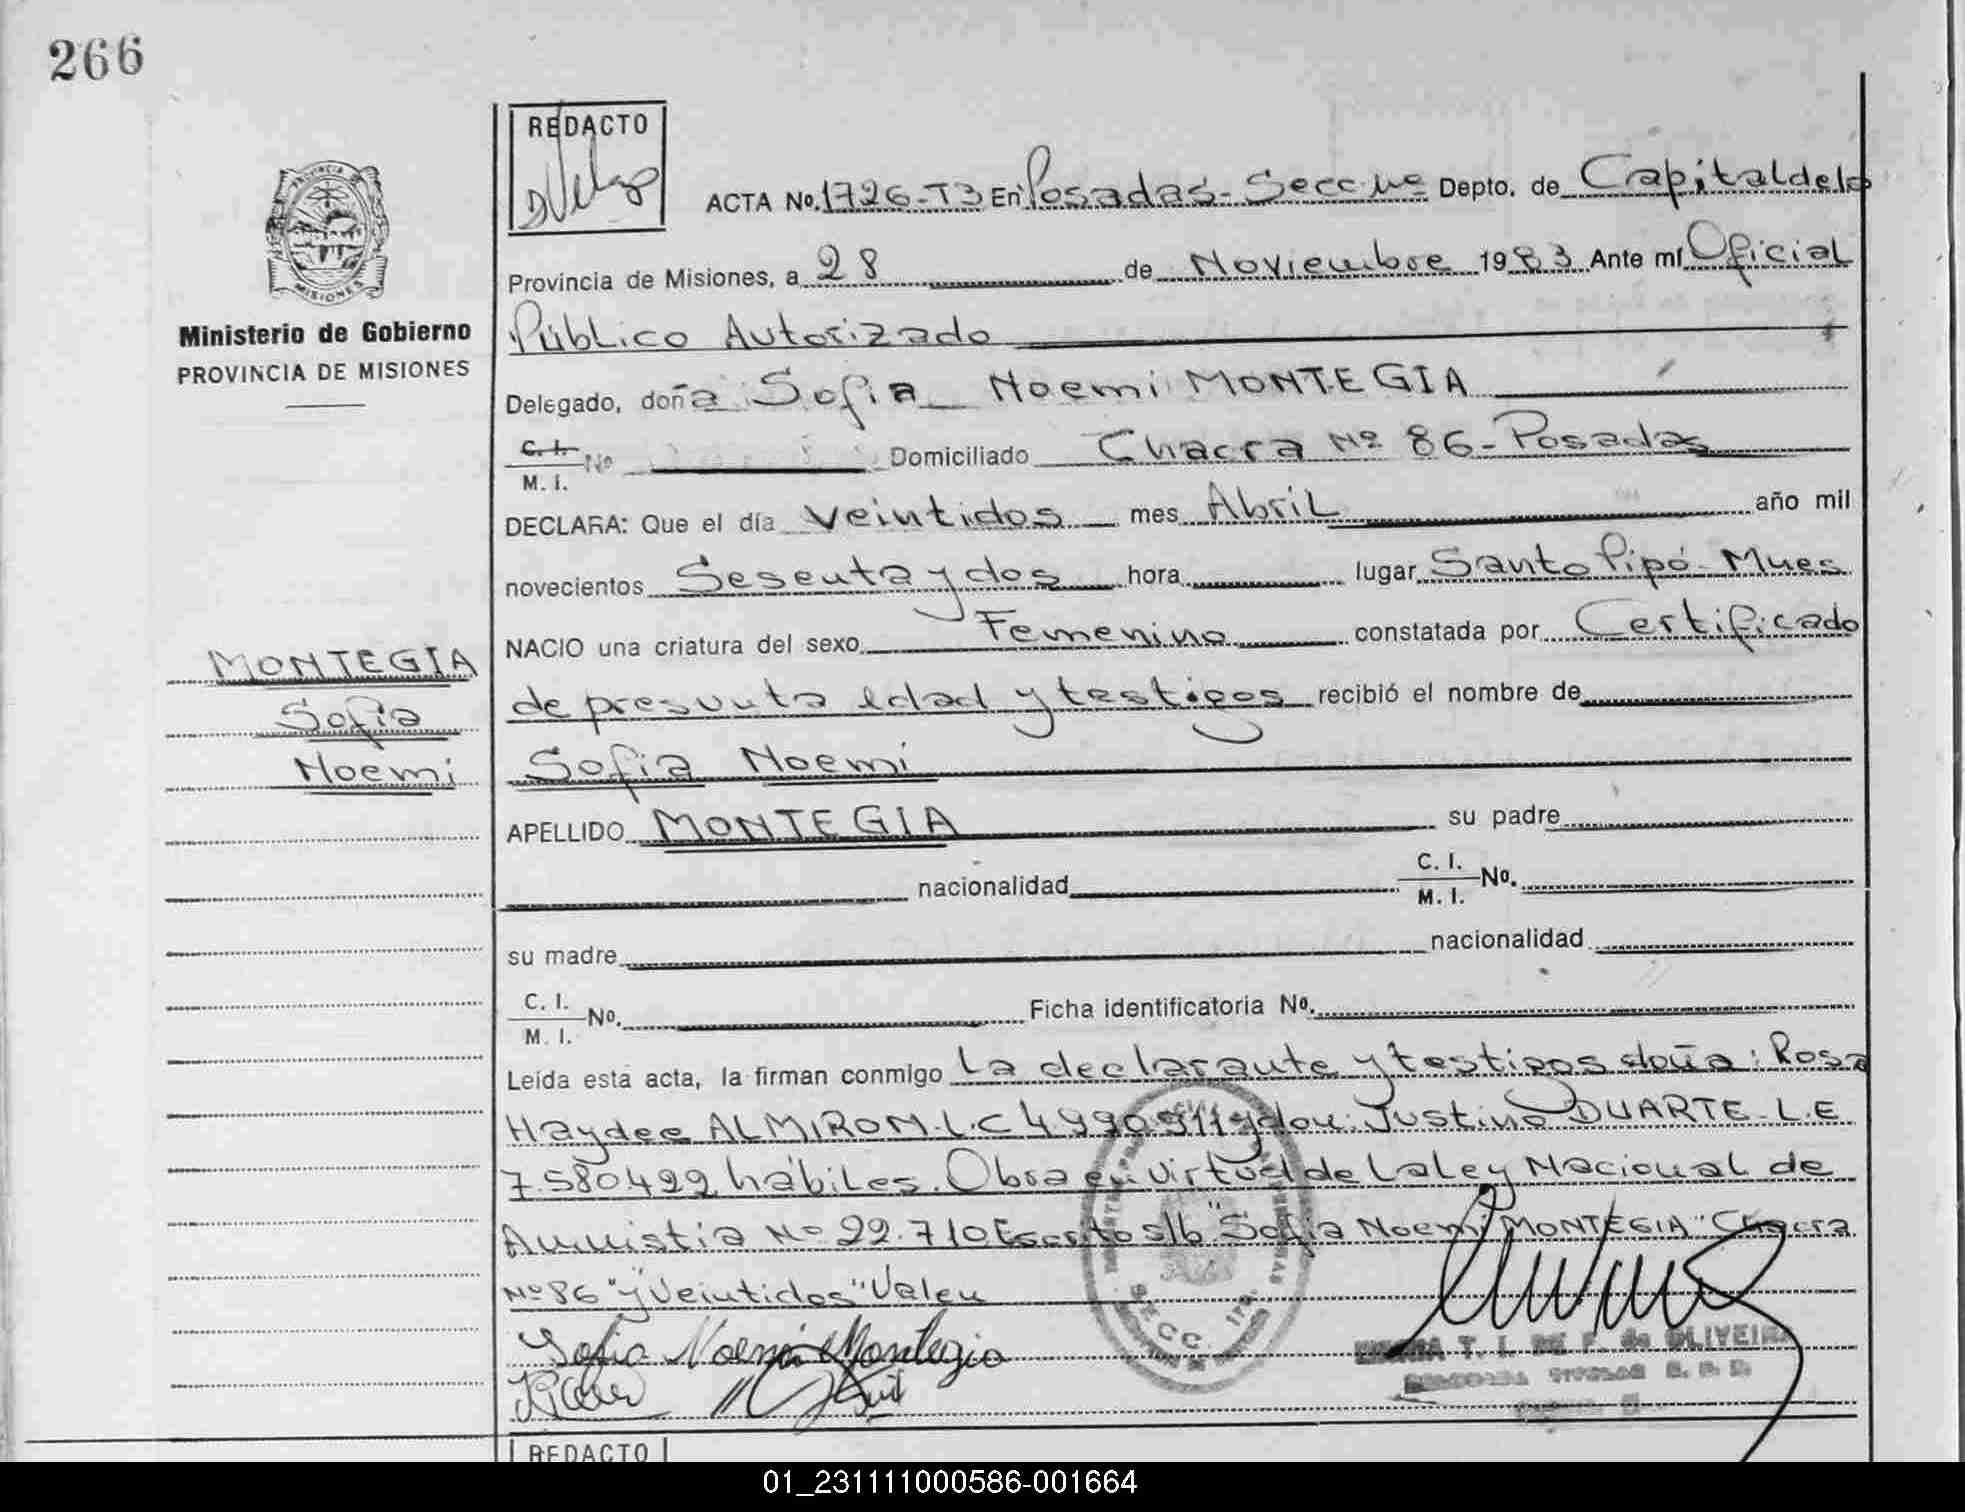 266
REDACTO
ACTA No. 1726-T3 En Posadas - Secc Depto. de Capital de la
Provincia de Misiones, a 28 de Noviembre 1983 Ante mí Oficial
Público Autorizado
Delegado, doña Sofia Noemi MONTEGIA
C. I.
M. I.
No Domiciliado Chacra Nº 86 - Posadas
DECLARA: Que el día veintidos mes Abril año mil
novecientos Sesenta y dos hora lugar Santo Pipó - Mnes
NACIO una criatura del sexo Femenino constatada por Certificado
de presunta edad y testigos recibió el nombre de
Sofia Noemi
APELLIDO MONTEGIA su padre
nacionalidad C. I.
M. I.
No.
su madre nacionalidad
C. I.
M. I.
No. Ficha identificatoria No.
Leída esta acta, la firman conmigo la declarante y testigos doña: Rosa
Haydee ALMIRON L.C 4990911 y don: Justino DUARTE - L.E
7.580499 hábiles. Obra en virtud de la ley Nacional de
Amnistia Nº 22.710 Escrito s/b "Sofia Noemi MONTEGIA" "Chacra
Nº 86" y "Veintidos" Valen
Sofia Noemi Montegia
T. I. DE F. de OLIVEIRA
SECC. 1ra.
PROVINCIA DE
MISIONES
Ministerio de Gobierno
PROVINCIA DE MISIONES
MONTEGIA
Sofia
Noemi
REDACTO
01_231111000586-001664